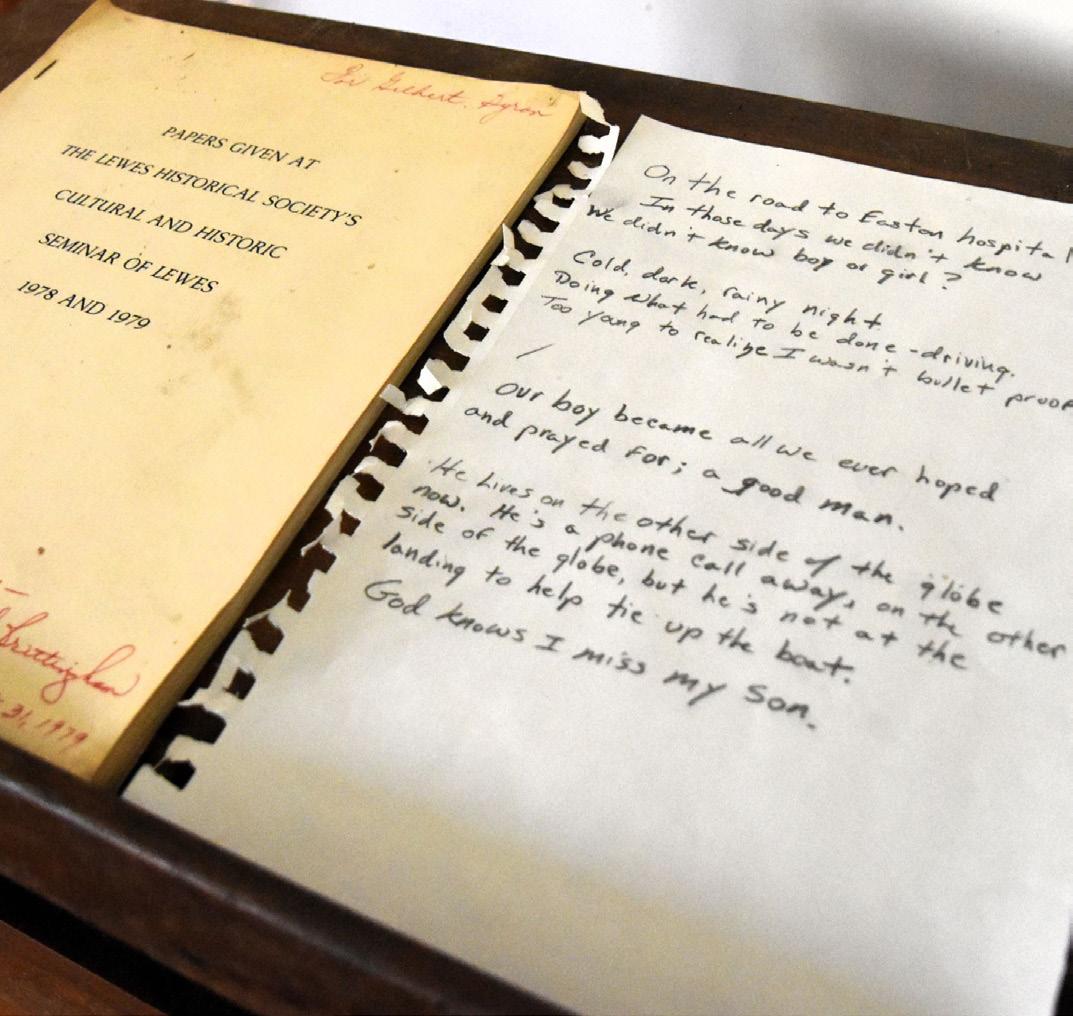 For Gilbert Byron
PAPERS GIVEN AT
THE LEWES HISTORICAL SOCIETY'S
CULTURAL AND HISTORIC
SEMINAR OF LEWES
1978 AND 1979
31, 1979
On the road to Easton hospital
In those days we didn't know
We didn't know boy or girl?
Cold, dark, rainy night
Doing what had to be done - driving.
Too young to realize I wasn't bullet proof
/
Our boy became all we ever hoped
and prayed for; a good man.
He lives on the other side of the globe
now. He's a phone call away, on the other
side of the globe, but he's not at the
landing to help tie up the boat.
God knows I miss my son.